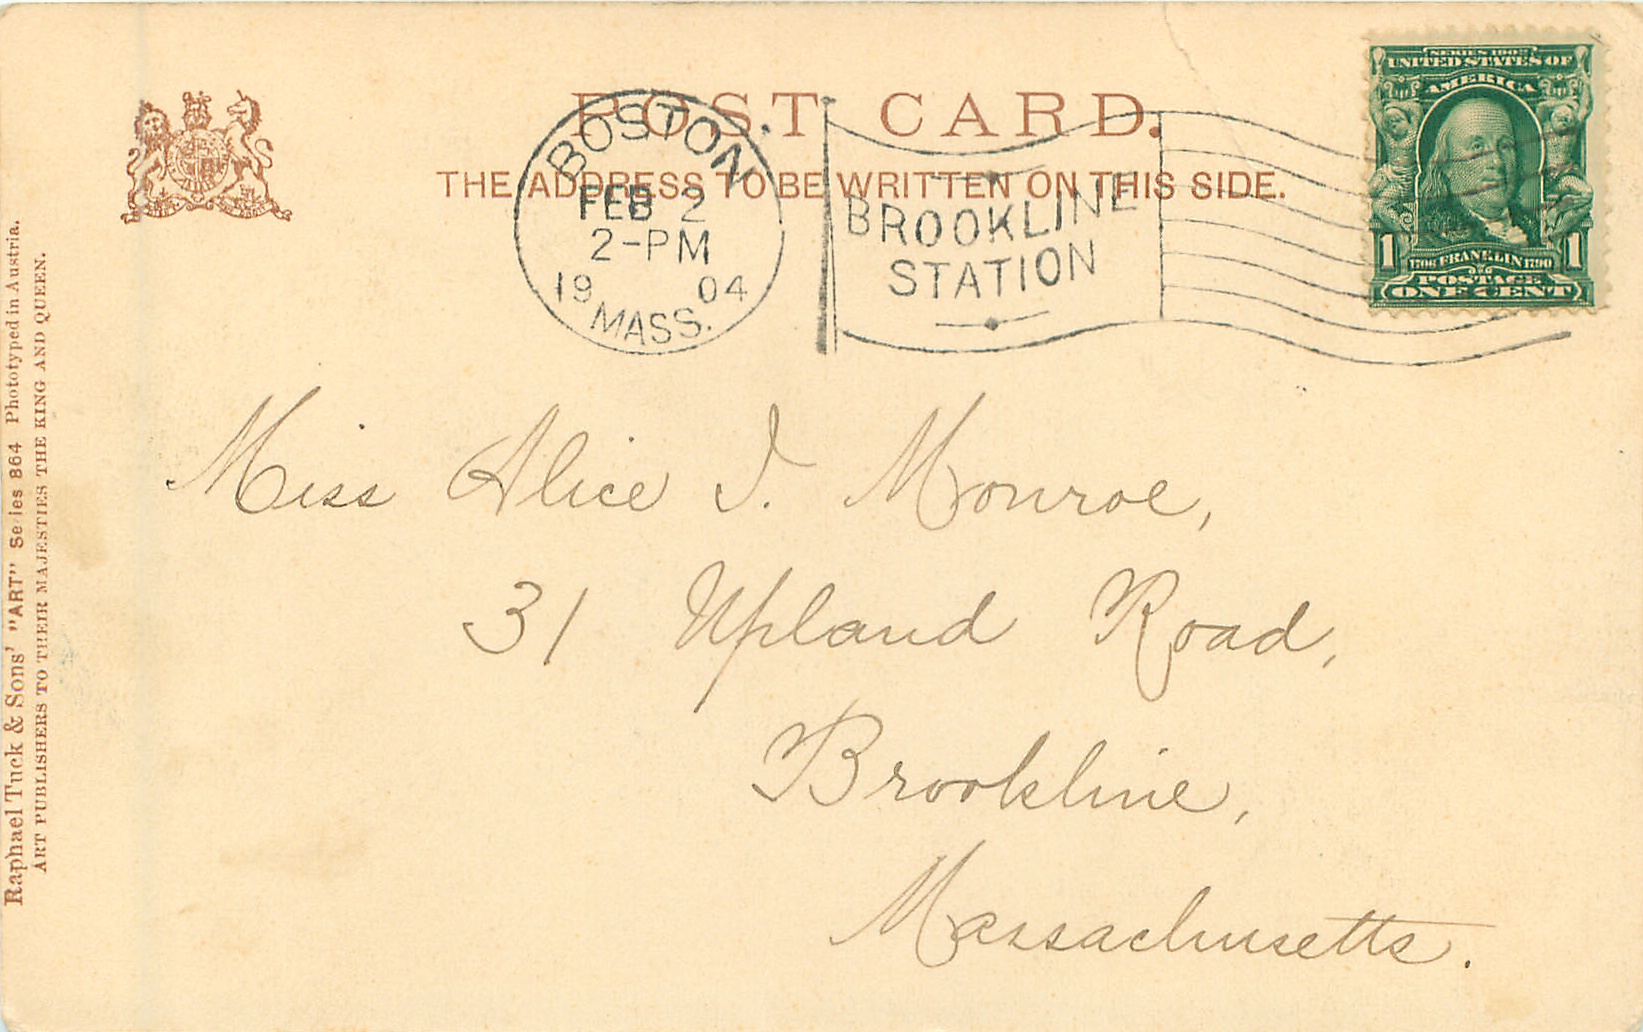 POST CARD.
THE ADDRESS TO BE WRITTEN ON THIS SIDE.
BOSTON
FEB 2
2-PM
19 04
MASS.
BROOKLINE
STATION
SERIES 1902
UNITED STATES OF
AMERICA
1 1
1706 FRANKLIN 1790
POSTAGE
ONE CENT
Miss Alice I. Monroe,
31 Upland Road,
Brookline,
Massachusetts.
Raphael Tuck & Sons' "ART" Series 864 Phototyped in Austria.
ART PUBLISHERS TO THEIR MAJESTIES THE KING AND QUEEN.